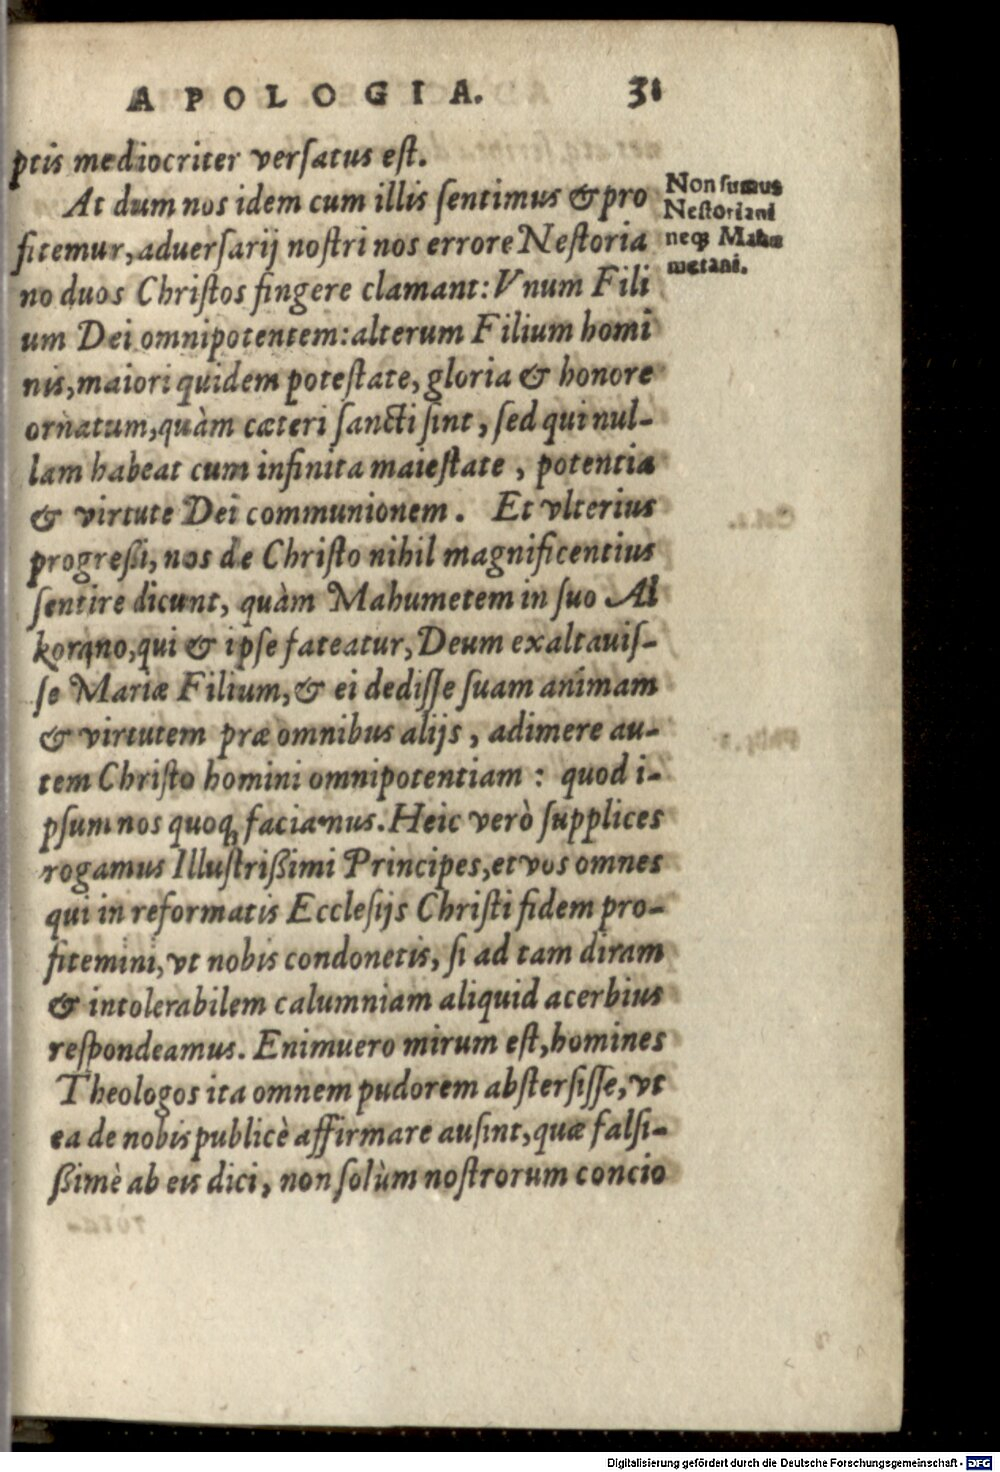 APOLOGIA. 31
ptis mediocriter versatus est.
At dum nos idem cum illis sentimus & pro
fitemur, aduersarij nostri nos errore Nestoria
no duos Christos fingere clamant: Vnum Fili
um Dei omnipotentem: alterum Filium homi
nis, maiori quidem potestate, gloria & honore
ornatum, quàm cæteri sancti sint, sed qui nul-
lam habeat cum infinita maiestate, potentia
& virtute Dei communionem. Et vlterius
progreßi, nos de Christo nihil magnificentius
sentire dicunt, quàm Mahumetem in suo Al
korano, qui & ipse fateatur, Deum exaltauis-
se Mariæ Filium, & ei dedisse suam animam
& virtutem præ omnibus alijs, adimere au-
tem Christo homini omnipotentiam: quod i-
psum nos quoq; faciamus. Heic verò supplices
rogamus Illustrißimi Principes, et vos omnes
qui in reformatis Ecclesijs Christi fidem pro-
fitemini, vt nobis condonetis, si ad tam diram
& intolerabilem calumniam aliquid acerbius
respondeamus. Enimuero mirum est, homines
Theologos ita omnem pudorem abstersisse, vt
ea de nobis publicè affirmare ausint, quæ falsi-
ßimè ab eis dici, non solùm nostrorum concio
Non sumus
Nestoriani
neq; Mahu
metani.
Digitalisierung gefördert durch die Deutsche Forschungsgemeinschaft - DFG